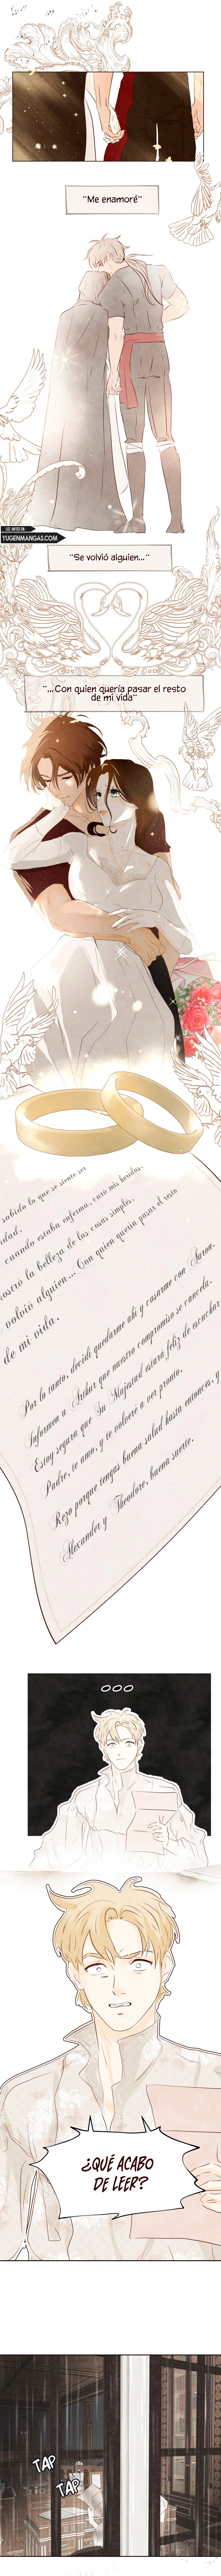 "Me enamoré"
LEE ANTES EN
YUGENMANGAS.COM
"Se volvió alguien..."
"...Con quien quería pasar el resto
de mi vida"
sabido lo que se siente ser
cuando estaba enferma, curó mis heridas.
mostró la belleza de las cosas simples.
volvió alguien... Con quien quería pasar el resto
de mi vida.
Por lo tanto, decidí quedarme ahí y casarme con Aaron.
Informen a Arthur que nuestro compromiso se cancela.
Estoy segura que Su Majestad estará feliz de escuchar
Padre, te amo, y te volveré a ver pronto.
Rezo porque tengas buena salud hasta entonces, y
Alexander y Theodore, buena suerte.
¿QUÉ ACABO
DE LEER?
TAP
TAP